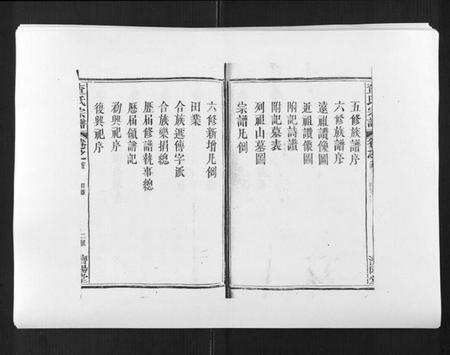 五修族譜序
六修族譜序
遠祖讚像圖
近祖讚像圖
附記詩讚
附記墓表
列祖山墓圖
宗譜凡例
六修新增凡例
田業
合族遞傳字派
合族樂捐總
歷届修譜執事總
歷届領譜記
初興祀序
後興祀序
氏宗譜
卷之
目錄
二號